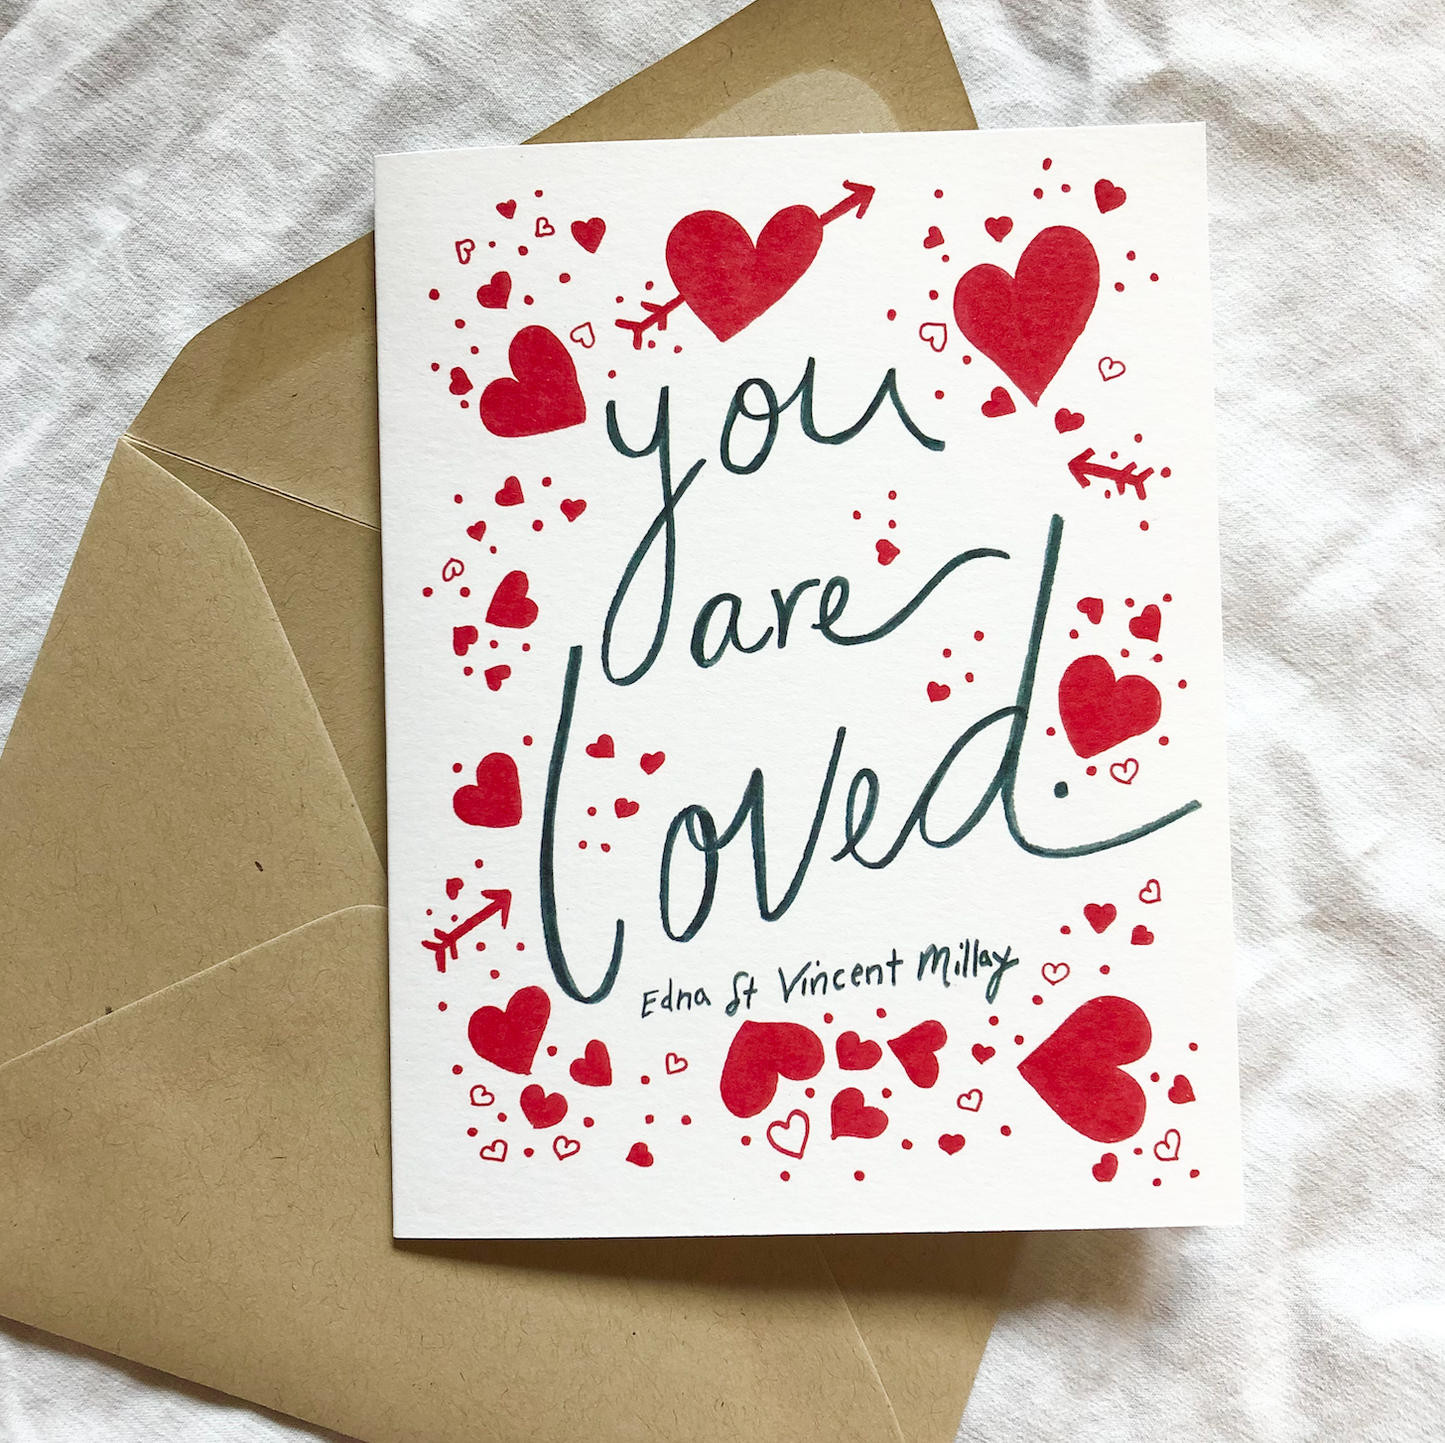 you
are
loved.
Edna St Vincent Millay